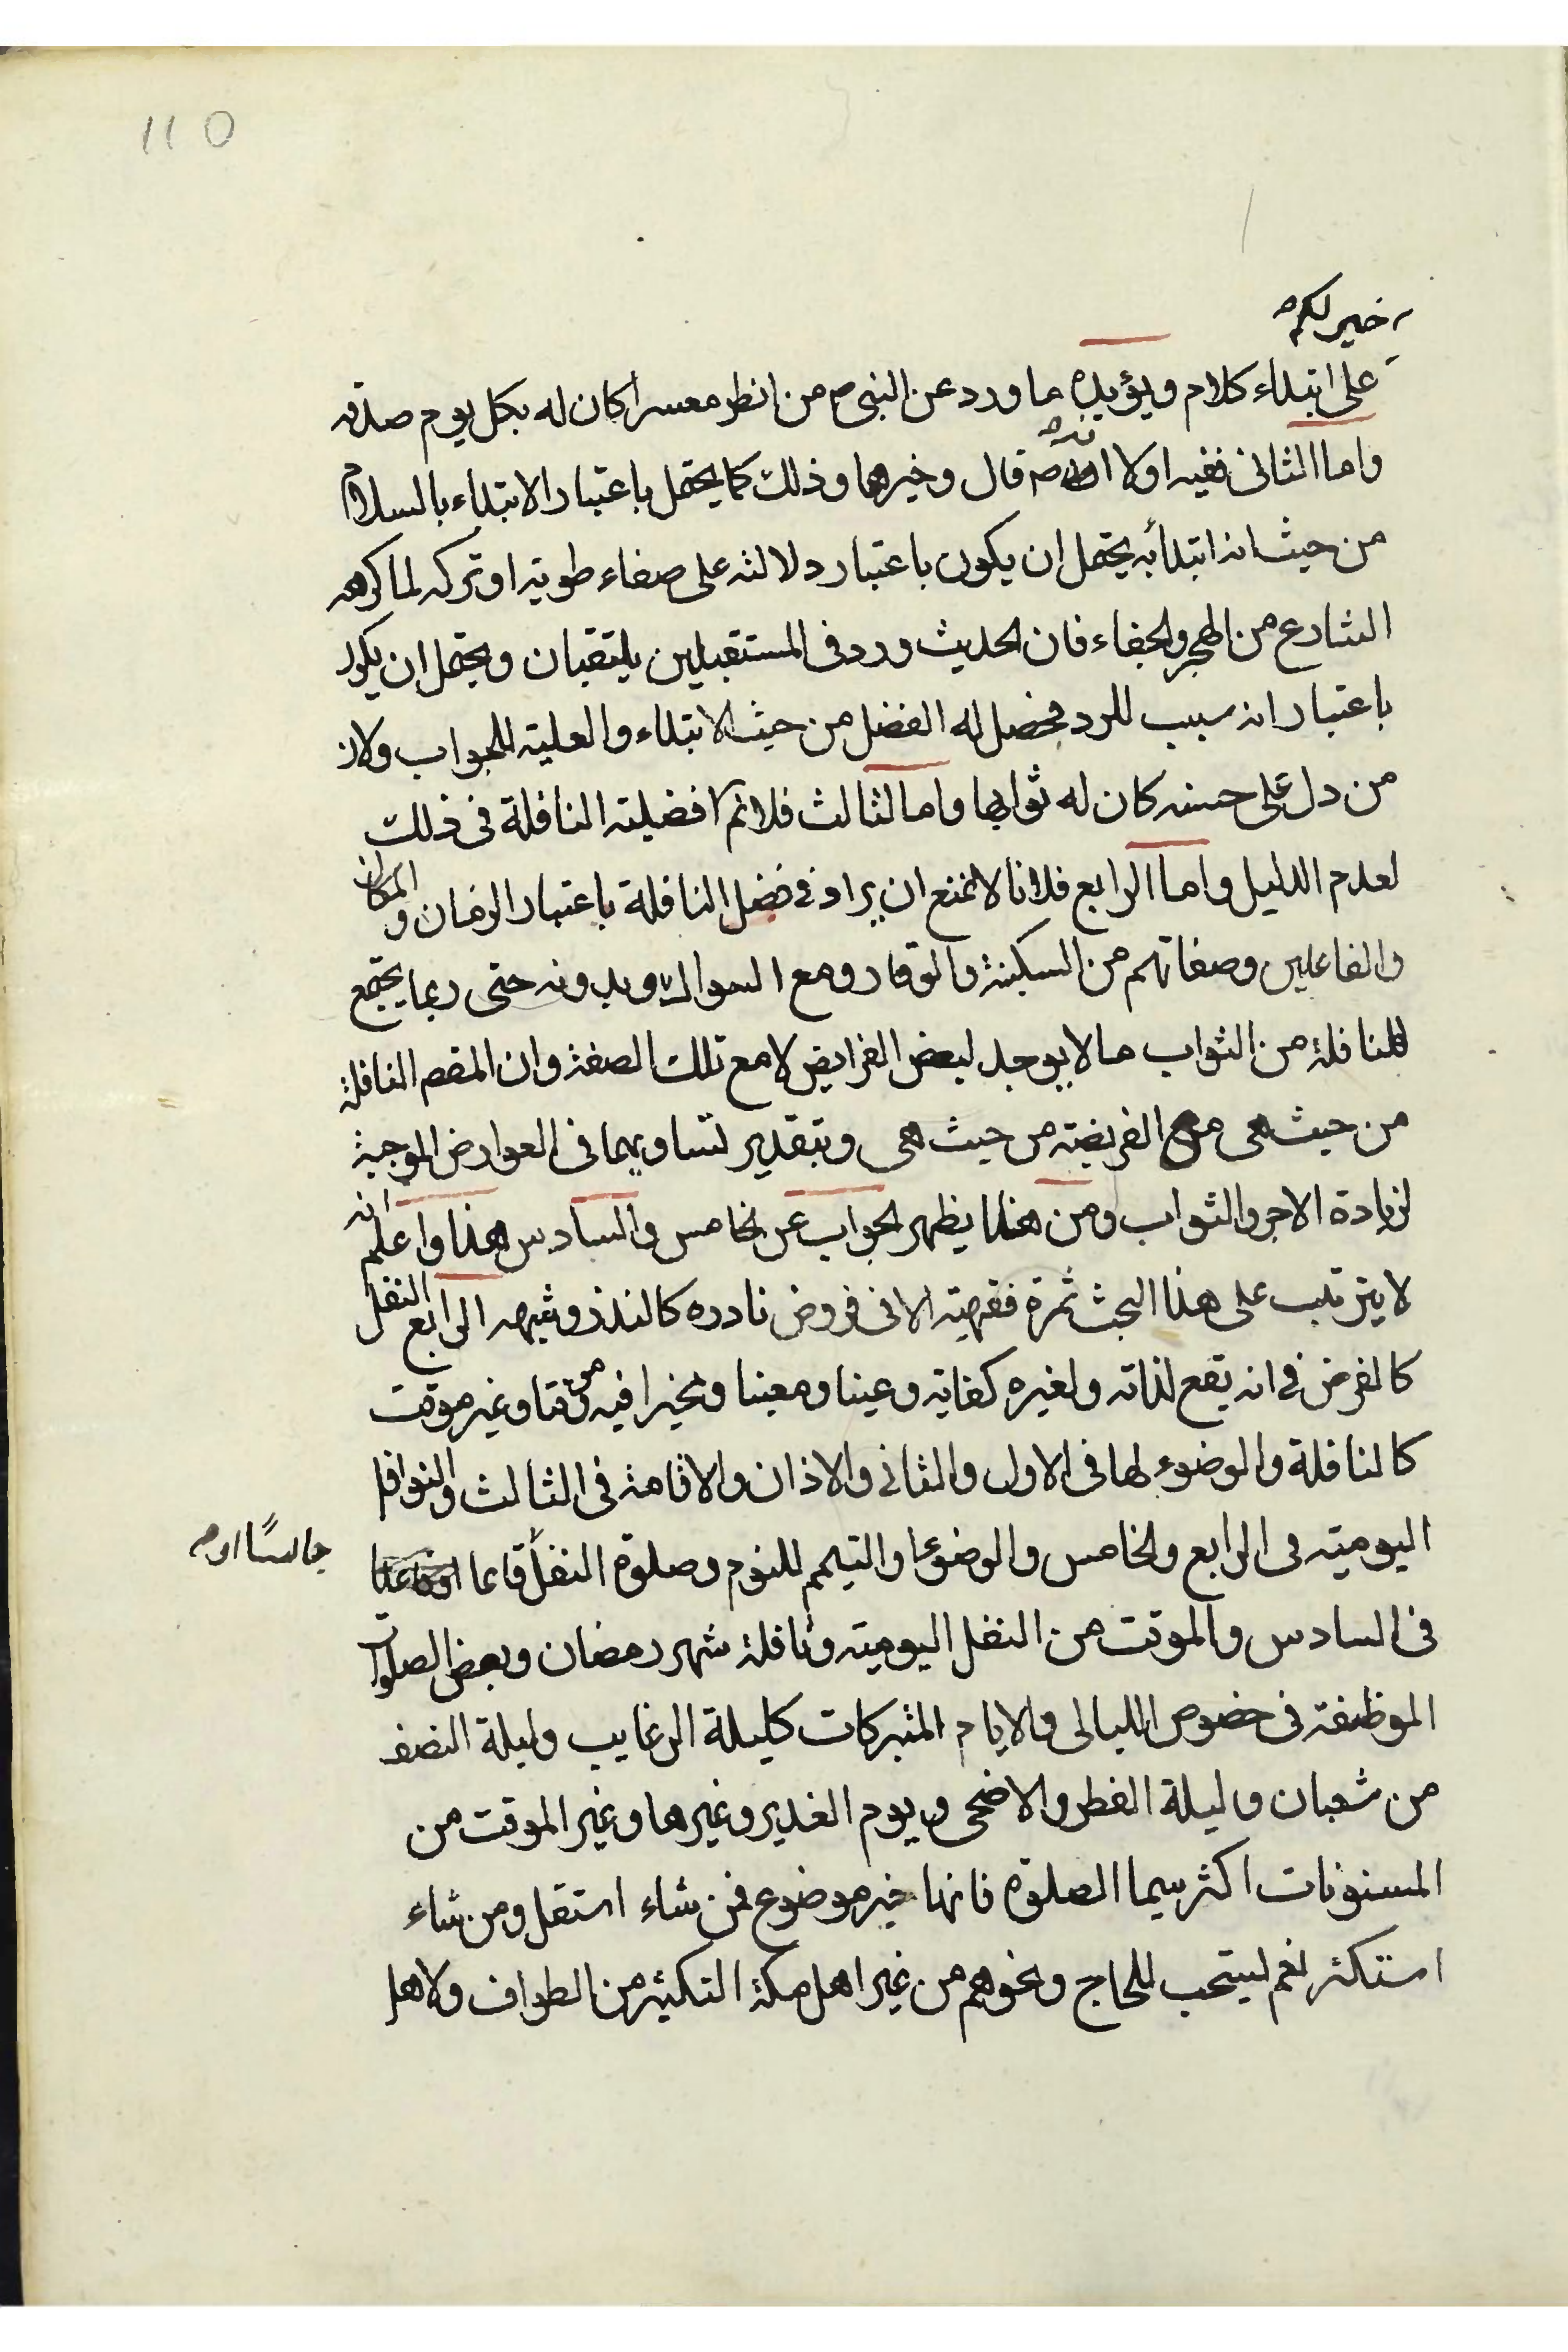 110
خير لكم
على ابتداء كلام ويؤيده ما ورد عن النبى ص من انظر معسرا كان له بكل يوم صدقه
واما الثانى ففيه اولا انه ص قال وخيرهما وذلك كما يحتمل باعتبار الابتداء بالسلام
من حيث انه ابتدأ به يحتمل ان يكون باعتبار دلالته على صفاء طويته او تركه لما كرهه
الشارع من الهجر والجفاء فان الحديث ورد فى المستقبلين يلتقيان ويحتمل ان يكون
باعتبار انه سبب للرد فحصل له الفضل من حيث الابتداء والعلية للجواب ولان
من دل على حسنه كان له ثوابها واما الثالث فلانم افضليته النافلة فى ذلك
لعدم الدليل واما الرابع فلانا لا نمنع ان يراد فى فضل النافلة باعتبار الزمان و المكان
والفاعلين وصفاتهم من السكينة والوقار ومع السواك وبدونه حتى ربما يجتمع
للنافلة من الثواب ما لا يوجد لبعض الفرايض لا مع تلك الصفة وان المقصم النافلة
من حيث هى مع الفريضة من حيث هى وبتقدير تساويهما فى العوارض الموجبة
لزيادة الاجر والثواب ومن هذا يظهر الجواب عن الخامس والسادس هذا واعلم انه
لا يترتب على هذا البحث ثمرة فقهية الا فى فروض نادره كالنذر وشبهه الرابع النفل
كالفرض فى انه يقع لذاته ولغيره كفاية وعينا ومعينا ومخيرا فيه موقتا وغير موقت
كالنافلة والوضوء لها فى الاول والثانى والاذان والاقامة فى الثالث والنوافل
اليومية فى الرابع والخامس والوضوء او التيمم للنوم وصلوة النفل قائما
جالسًا او م
فى السادس والموقت من النفل اليومية ونافلة شهر رمضان وبعض الصلوات
الموظفة فى خصوص الليالى والايام المتبركات كليلة الرغايب وليلة النصف
من شعبان وليلة الفطر والاضحى ويوم الغدير وغيرها وغير الموقت من
المسنونات اكثر سيما الصلوة فانها خير موضوع فمن شاء استقل ومن شاء
استكثر نعم يستحب للحاج ونحوهم من غير اهل مكة التكثير من الطواف ولاهل